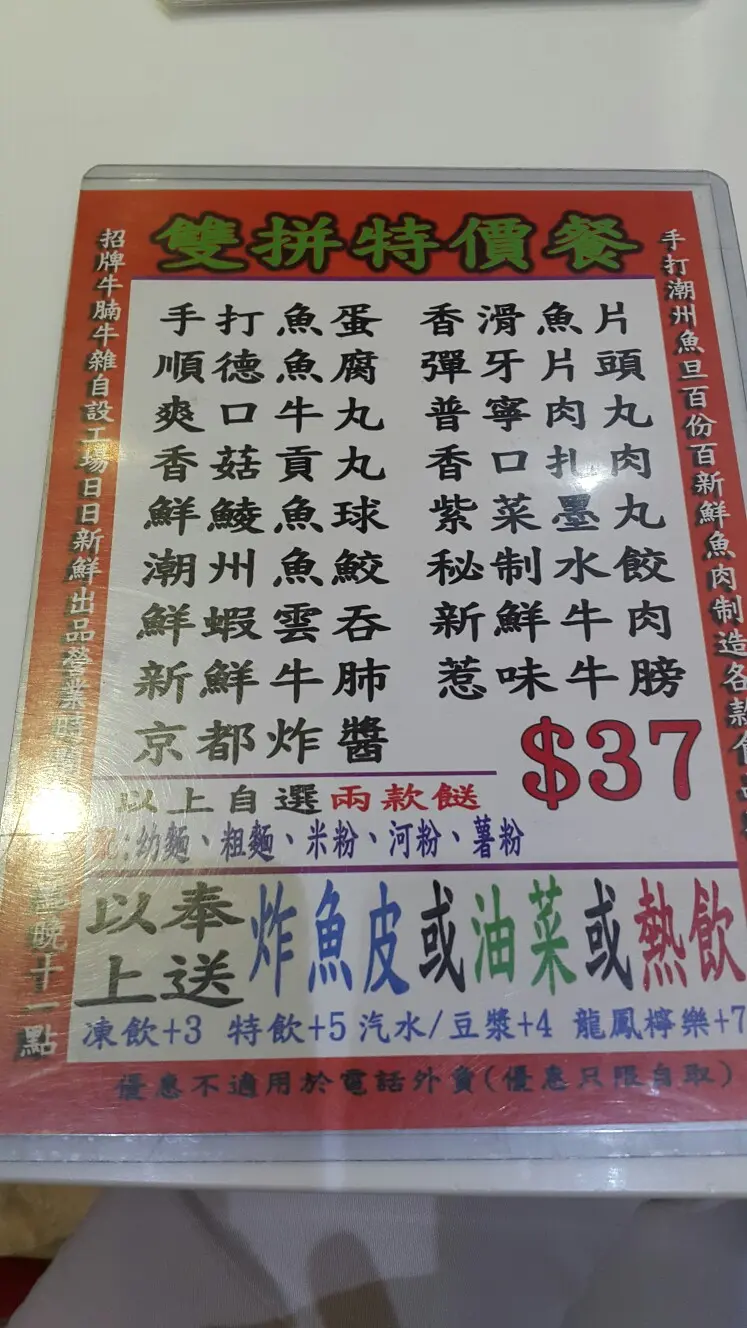 雙拼特價餐
招牌牛腩牛雜自設工場日日新鮮出品營業時間
晚十一點
手打魚蛋 香滑魚片
順德魚腐 彈牙片頭
爽口牛丸 普寧肉丸
香菇貢丸 香口扎肉
鮮鯪魚球 紫菜墨丸
潮州魚餃 秘制水餃
鮮蝦雲吞 新鮮牛肉
新鮮牛肺 惹味牛膀
京都炸醬
$37
以上自選兩款餸
配:幼麵、粗麵、米粉、河粉、薯粉
以上奉送炸魚皮或油菜或熱飲
凍飲+3 特飲+5 汽水/豆漿+4 龍鳳檸樂+7
優惠不適用於電話外賣(優惠只限自取)
手打潮州魚旦百份百新鮮魚肉制造各款食品